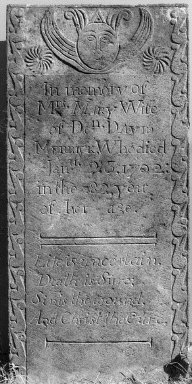 In memory of
Mrs Mary Wife
of Den David
Who died
Janry 23 1792
in the 82 year
of her age.
Life is uncertain,
Death is Sure,
Sin is the wound,
And Christ the Cure.